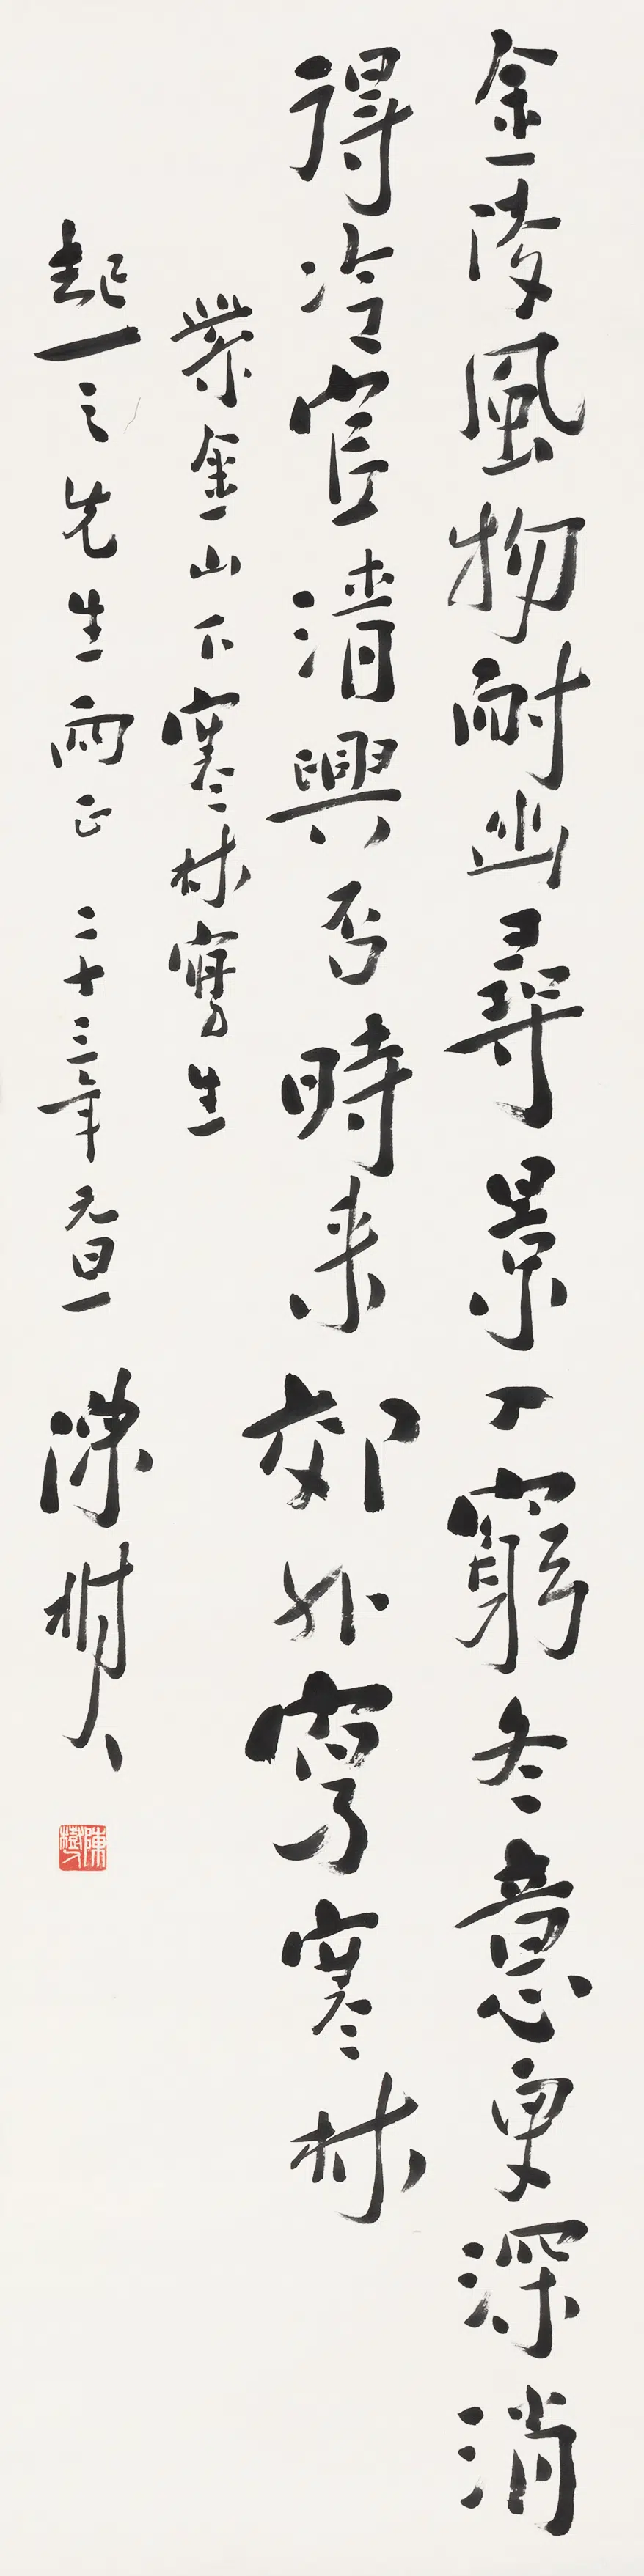 金陵風物耐幽尋景入窮冬意更深消
得冷官清興否時来郊外寫寒林
紫金山下寒林寫生
起之先生兩正 二十三年元旦 陳樹人
陳樹人